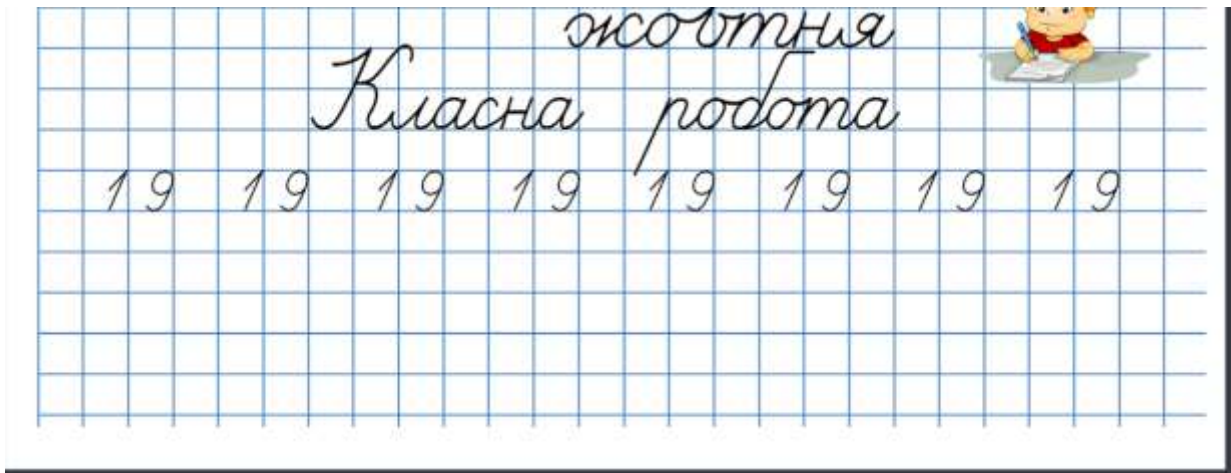 жовтня
Класна робота
19 19 19 19 19 19 19 19